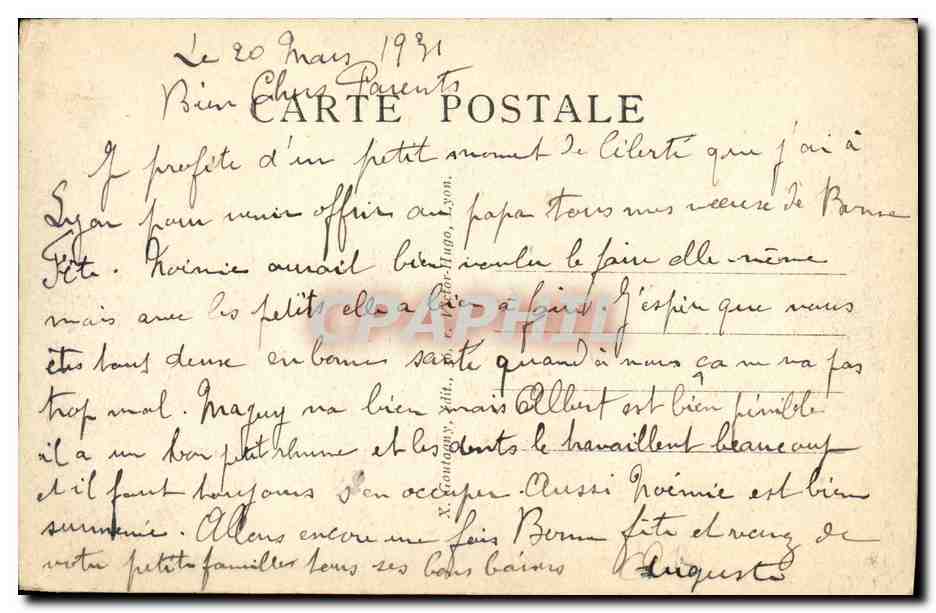 Le 20 Mars 1931
Bien Chers Parents
CARTE POSTALE
Je profite d'un petit moment de liberté que j'ai à
Lyon pour venir offrir au papa tous mes veuse de Bonne
Fête. Noémie aurait bien voulu le faire elle-même
mais avec les petits elle a bien à faire. J'espère que vous
êtes tous deuse en bonne santé quand à nous ça ne va pas
trop mal. Maguy va bien mais Albert est bien pénible
il a un bon petit rhume et les dents le travaillent beaucoup
et il faut toujours s'en occuper. Aussi Noémie est bien
surmenée. Allons encore une fois Bonne fête et recevez de
votre petite familles tous ses bons baisers Auguste
X. Goutagny, édit., Victor-Hugo, Lyon.
CPAPHIL